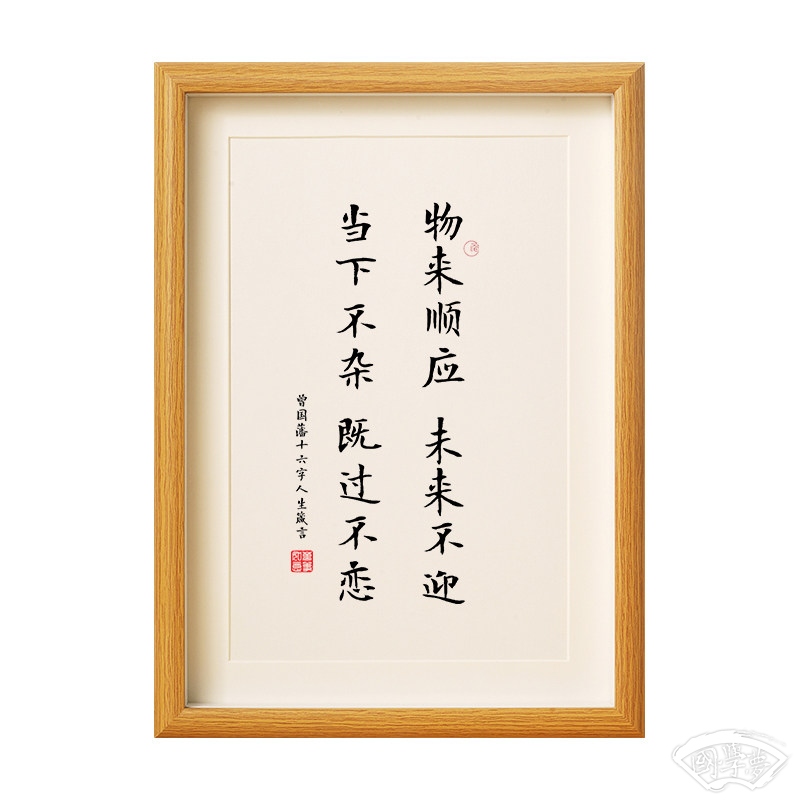 物来顺应 未来不迎
当下不杂 既过不恋
曾国藩十六字人生箴言
國學夢